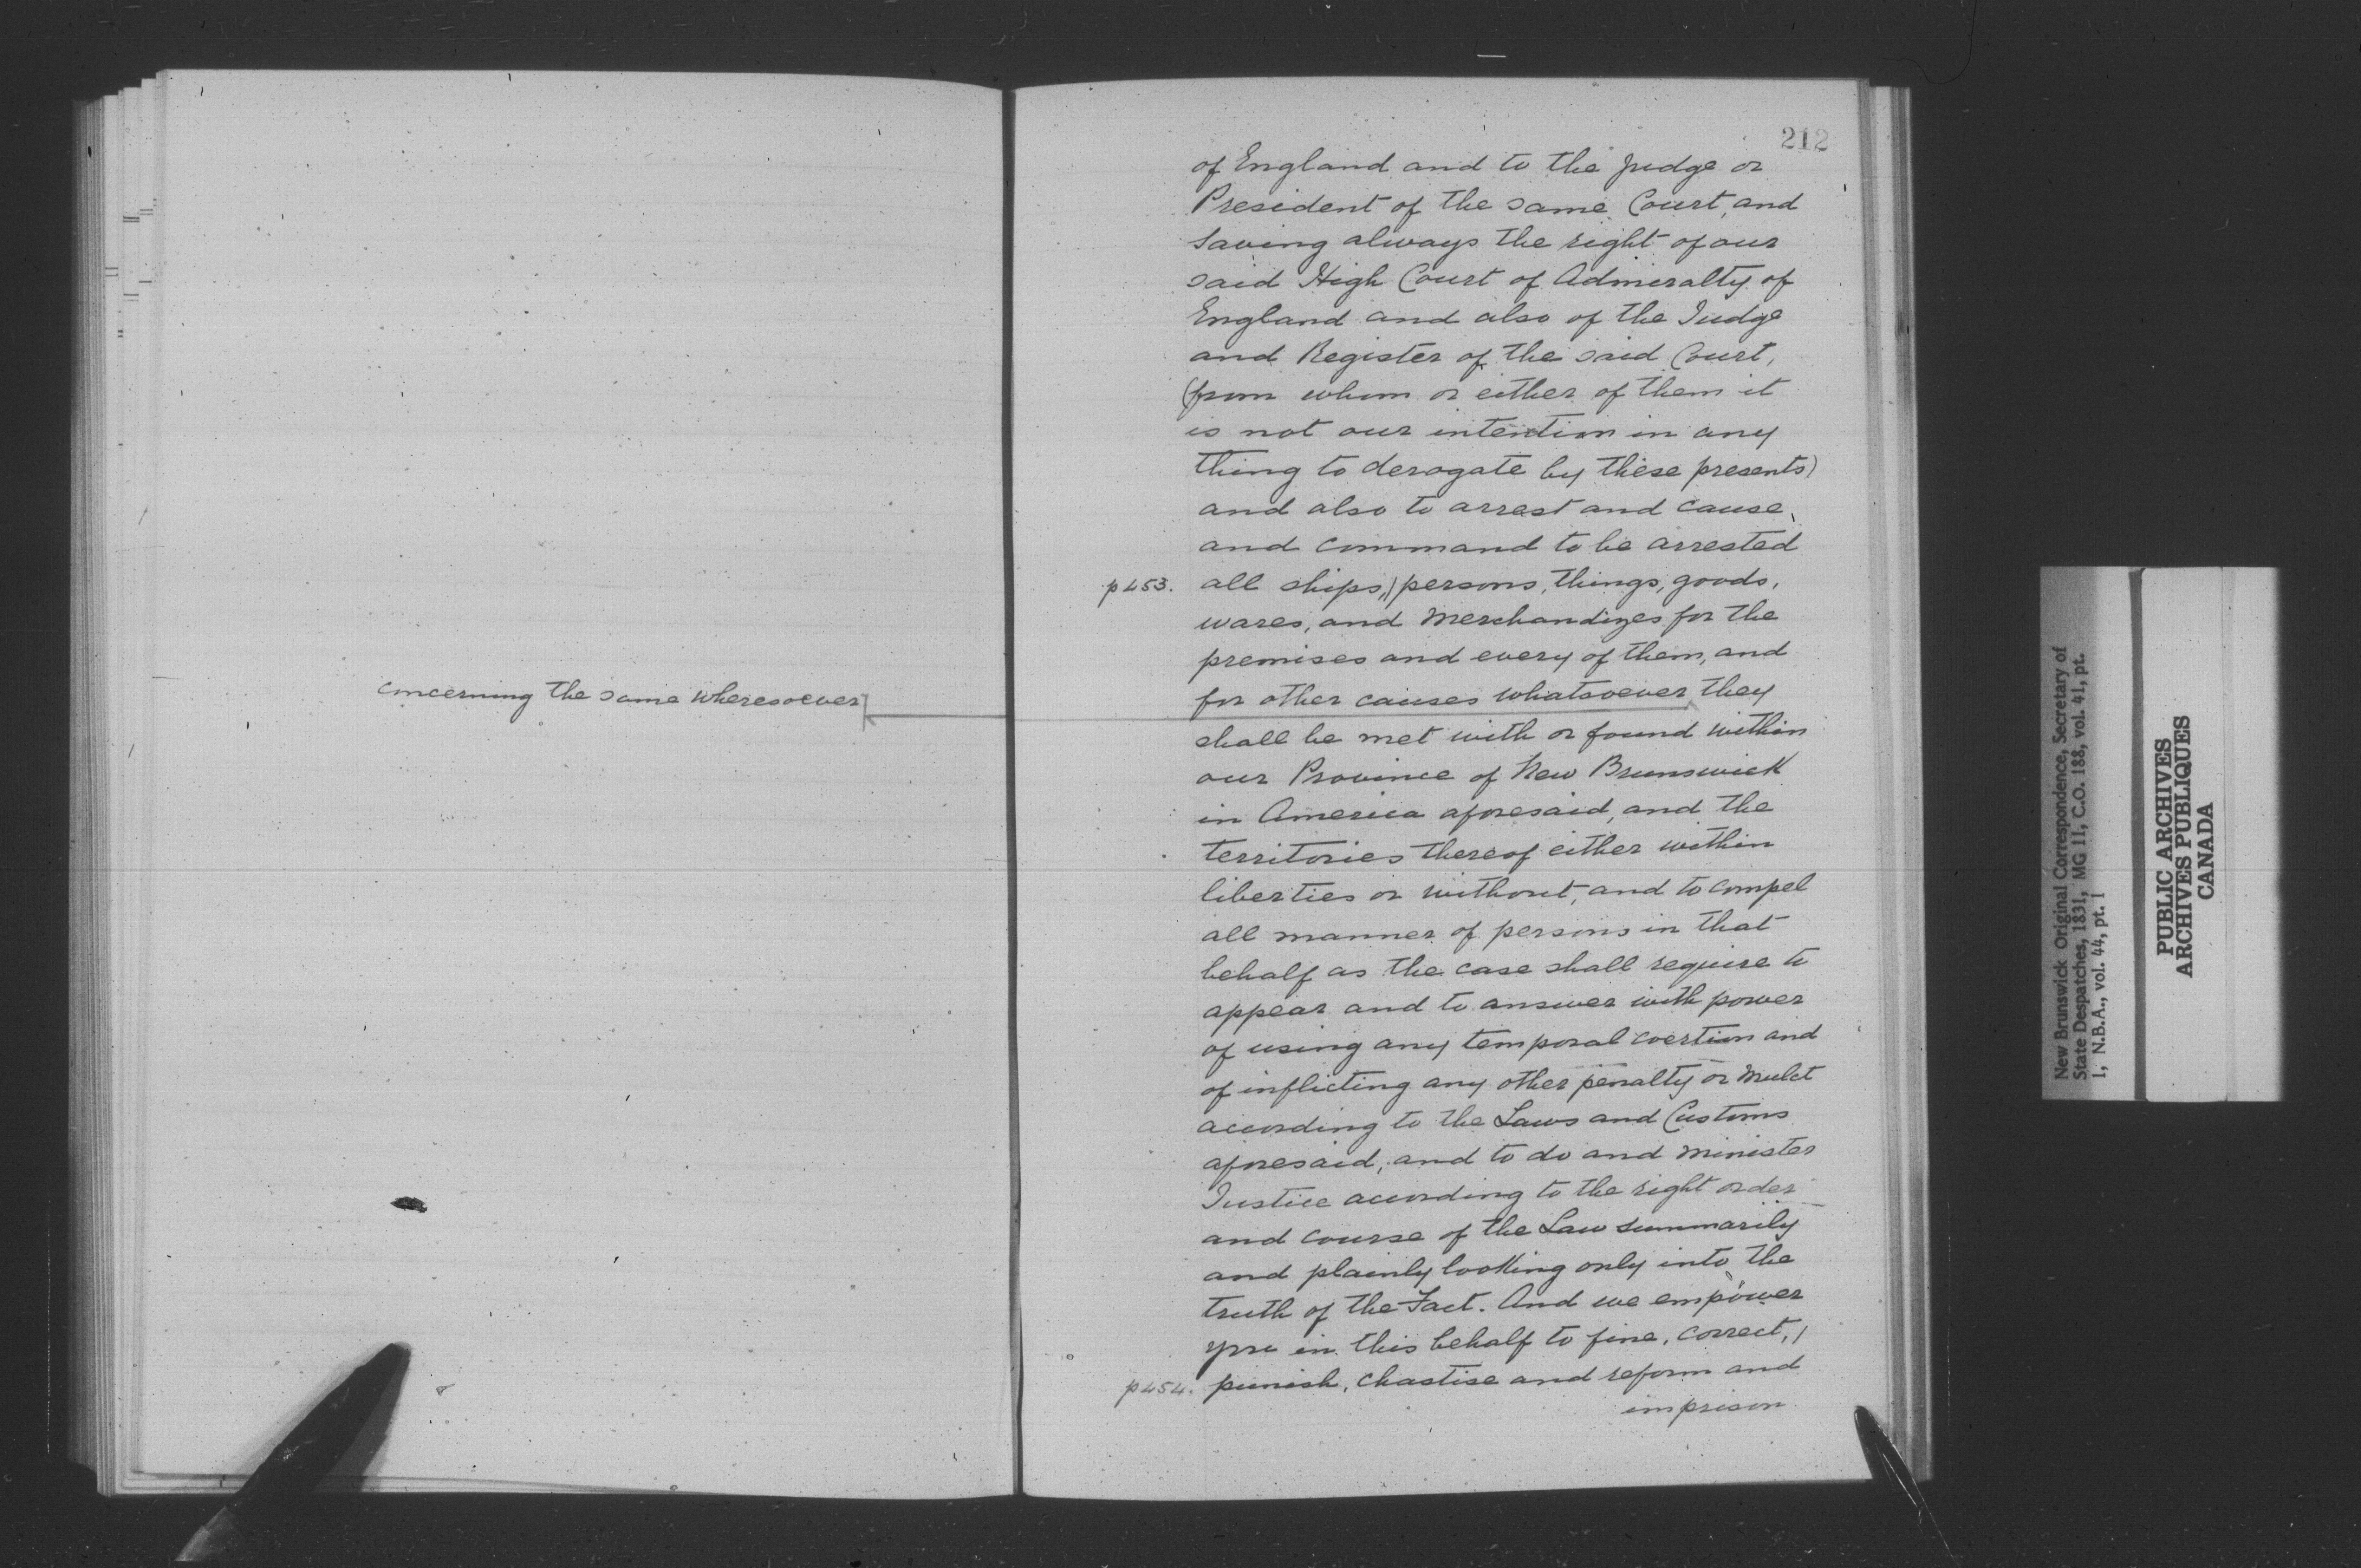 concerning the same wheresoever
212
of England and to the judge or
President of the same Court, and
saving always the right of our
said High Court of Admiralty of
England and also of the Judge
and Register of the said Court,
(from whom or either of them it
is not our intention in any
thing to derogate by these presents)
and also to arrest and cause
and command to be arrested
p453. all ships, persons, things, goods,
wares, and merchandizes for the
premises and every of them, and
for other causes whatsoever they
shall be met with or found within
our Province of New Brunswick
in America aforesaid, and the
territories thereof either within
liberties or without, and to compel
all manner of persons in that
behalf as the case shall require to
appear and to answer with power
of using any temporal coertion and
of inflicting any other penalty or mulct
according to the Laws and Customs
aforesaid, and to do and minister
Justice according to the right order
and course of the Law summarily
and plainly looking only into the
truth of the Fact. And we empower
you in this behalf to fine, correct,
p454. punish, chastise and reform and
imprison
New Brunswick Original Correspondence, Secretary of
State Despatches, 1831, MG 11, C.O. 188, vol. 41, pt.
1, N.B.A., vol. 44, pt. 1
PUBLIC ARCHIVES
ARCHIVES PUBLIQUES
CANADA